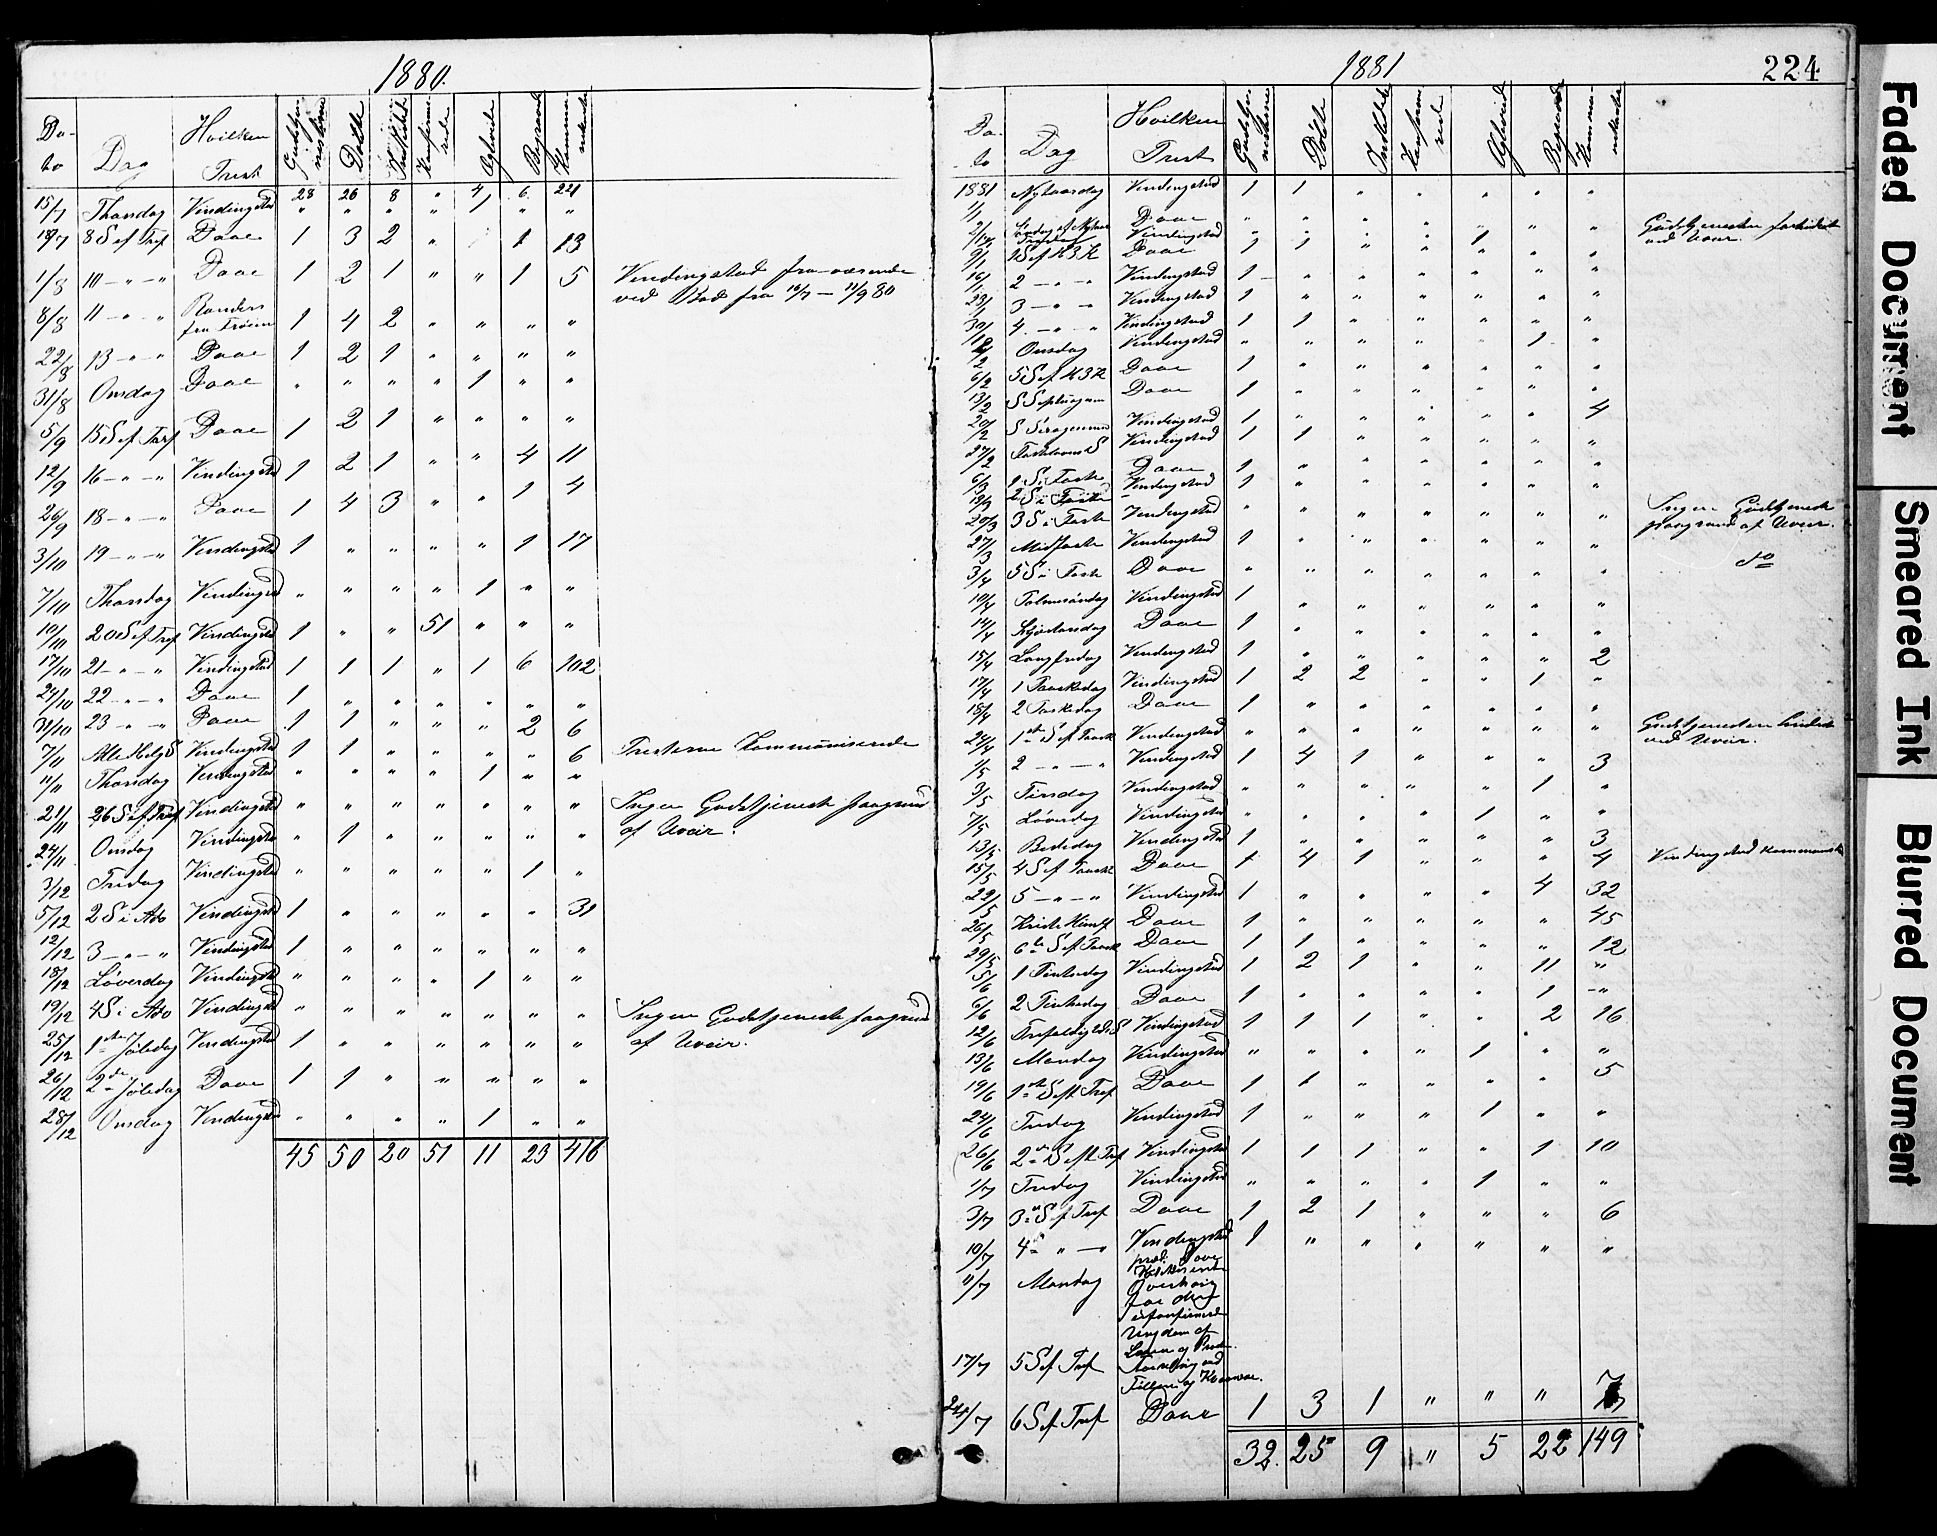 1880.
Da-
to
Dag
Hvilken
Prest
Gudstje-
nesterne
Døbte
Indledede
Konfirme-
rede
Ægteviede
Begravede
Kommu-
nikanter
28 26 8 " 4 6 221
15/7 Thorsdag Vindingstad " " " " 1 " "
18/7 8 S ef Tref Daae 1 3 2 " 1 13
1/8 10 – " – " Daae 1 2 1 " " 1 5 Vindingstad fraværende
ved Bad fra 16/7 – 11/9 80
8/8 11 – " – " Randers
fra Frøien 1 4 2 " " " "
22/8 13 – " – " Daae 1 2 1 " " " "
31/8 Onsdag Daae " " " " 1 " "
5/9 15 S ef Tref Daae 1 2 1 " " " "
12/9 16 – " – " Vindingstad 1 2 1 " " 4 11
26/9 18 – " – " Daae 1 4 3 " " 1 4
3/10 19 – " – " Vindingstad 1 " " " " 1 17
7/10 Thorsdag Vindingstad " " " " 1 " "
10/10 20 S ef Tref Vindingstad 1 " " 51 " " "
17/10 21 – " – " Vindingstad 1 1 1 " 1 6 102
24/10 22 – " – " Daae 1 " " " " " "
31/10 23 – " – " Daae 1 1 " " " 2 6
7/11 Alle Helg S Vindingstad 1 1 " " " " 6 Presterne kommuniserede
11/11 Thorsdag Vindingstad " " " " 1 " "
21/11 26 S ef Tref Vindingstad " " " " " " " Ingen Gudstjeneste paagrund
af Uveir.
24/11 Onsdag Vindingstad " 1 " " " " "
3/12 Fredag Vindingstad " " " " " 1 "
5/12 2 S i Adv Vindingstad 1 " " " " " 31
12/12 3 – " – " Vindingstad 1 " " " " " "
18/12 Løverdag Vindingstad " " " " 1 " "
19/12 4 S i Adv Vindingstad " " " " " " " Ingen Gudstjeneste paagrund
af Uveir.
25/12 1ste Juledag Vindingstad 1 " " " " " "
26/12 2de Juledag Daae 1 1 " " " " "
28/12 Onsdag Vindingstad " " " " 1 " "
45 50 20 51 11 23 416
1881
224
Da-
to
Dag
Hvilken
Prest
Gudstje-
nesterne
Døbte
Indledede
Konfirme-
rede
Ægteviede
Begravede
Kommu-
nikanter
1881
1/1 Nytaarsdag Vindingstad 1 1 " " " " "
2/1 Søndag ef Nytaar Daae " " " " " " " Gudstjenesten forhindret
ved Uveir.
Vindingstad " " " " 1 " "
9/1 1 S ef H3K Daae 1 1 " " " " "
16/1 2 – " – " Vindingstad 1 " " " " " "
23/1 3 – " – " Vindingstad 1 " " " " " "
30/1 4 – " – " Vindingstad 1 1 " " " " "
2/2 Onsdag Vindingstad " " " " " 1 "
6/2 5 S ef H3K Daae 1 " " " " " "
13/2 S Septuagesima Daae 1 " " " " " 4
20/2 S Sexagesima Vindingstad 1 " " " " " "
27/2 Fastelavns S Vindingstad 1 1 " " " " "
6/3 1 S i Faste Daae 1 " " " " " "
13/3 2 S i Faste Vindingstad 1 " " " " " "
20/3 3 S i Faste Vindingstad " " " " " " " Ingen Gudstjeneste
paagrund af Uveir.
27/3 Midfaste Vindingstad 1 " " " " " "
3/4 5 S i Faste Daae " " " " " " " do
10/4 Palmesøndag Vindingstad 1 " " " " " "
14/4 Skjertorsdag Daae 1 " " " " " "
15/4 Langfredag Vindingstad 1 " " " " " 2
17/4 1 Paaskedag Vindingstad 1 2 2 " " 1 "
18/4 2 Paaskedag Daae 1 " " " " " "
24/4 1ste S ef Paask Vindingstad " " " " " " " Gudstjenesten hindret
ved Uveir.
1/5 2 – " – " Vindingstad 1 4 1 " " " 3
3/5 Tirsdag Vindingstad " " " " " 1 "
7/5 Løverdag Vindingstad " " " " 1 " "
13/5 Bededag Vindingstad 1 " " " " " 3
15/5 4 S ef Paaske Daae 1 4 1 " " " 4 Vindingstad kommunic
22/5 5 – " – " Vindingstad 1 " " " " 4 32
26/5 Kristi Himlf Daae 1 " " " " " 45
29/5 6te S ef Paask Daae 1 1 " " " " 12
5/6 1 Pintsedag Vindingstad 1 2 1 " " 11 "
6/6 2 Pintsedag Daae 1 " " " " 1 "
12/6 Trefoldigheds S Vindingstad 1 1 1 " " 2 16
13/6 Mandag Vindingstad " " " " 1 " "
19/6 1ste S eft Tref Daae 1 1 " " " " 5
24/6 Fredag Vindingstad 1 " " " 1 " "
26/6 2den S eft Tref Vindingstad 1 1 1 " " 1 10
1/7 Fredag Vindingstad " " " " 1 " "
3/7 3die S ef Tref Daae 1 2 1 " " " 6
10/7 4de " – Vindingstad 1 " " " " " "
præd. Daae
11/7 Mandag
Overhøring
for den
confirmerede
Ungdom af
17/7 5 S ef Tref
Fillan og Kvenvær.
24/7 6 S ef Tref Daae 1 3 1 " " " 7
32. 25 9 " 5 22 149
Faded Document
Smeared Ink
Blurred Document